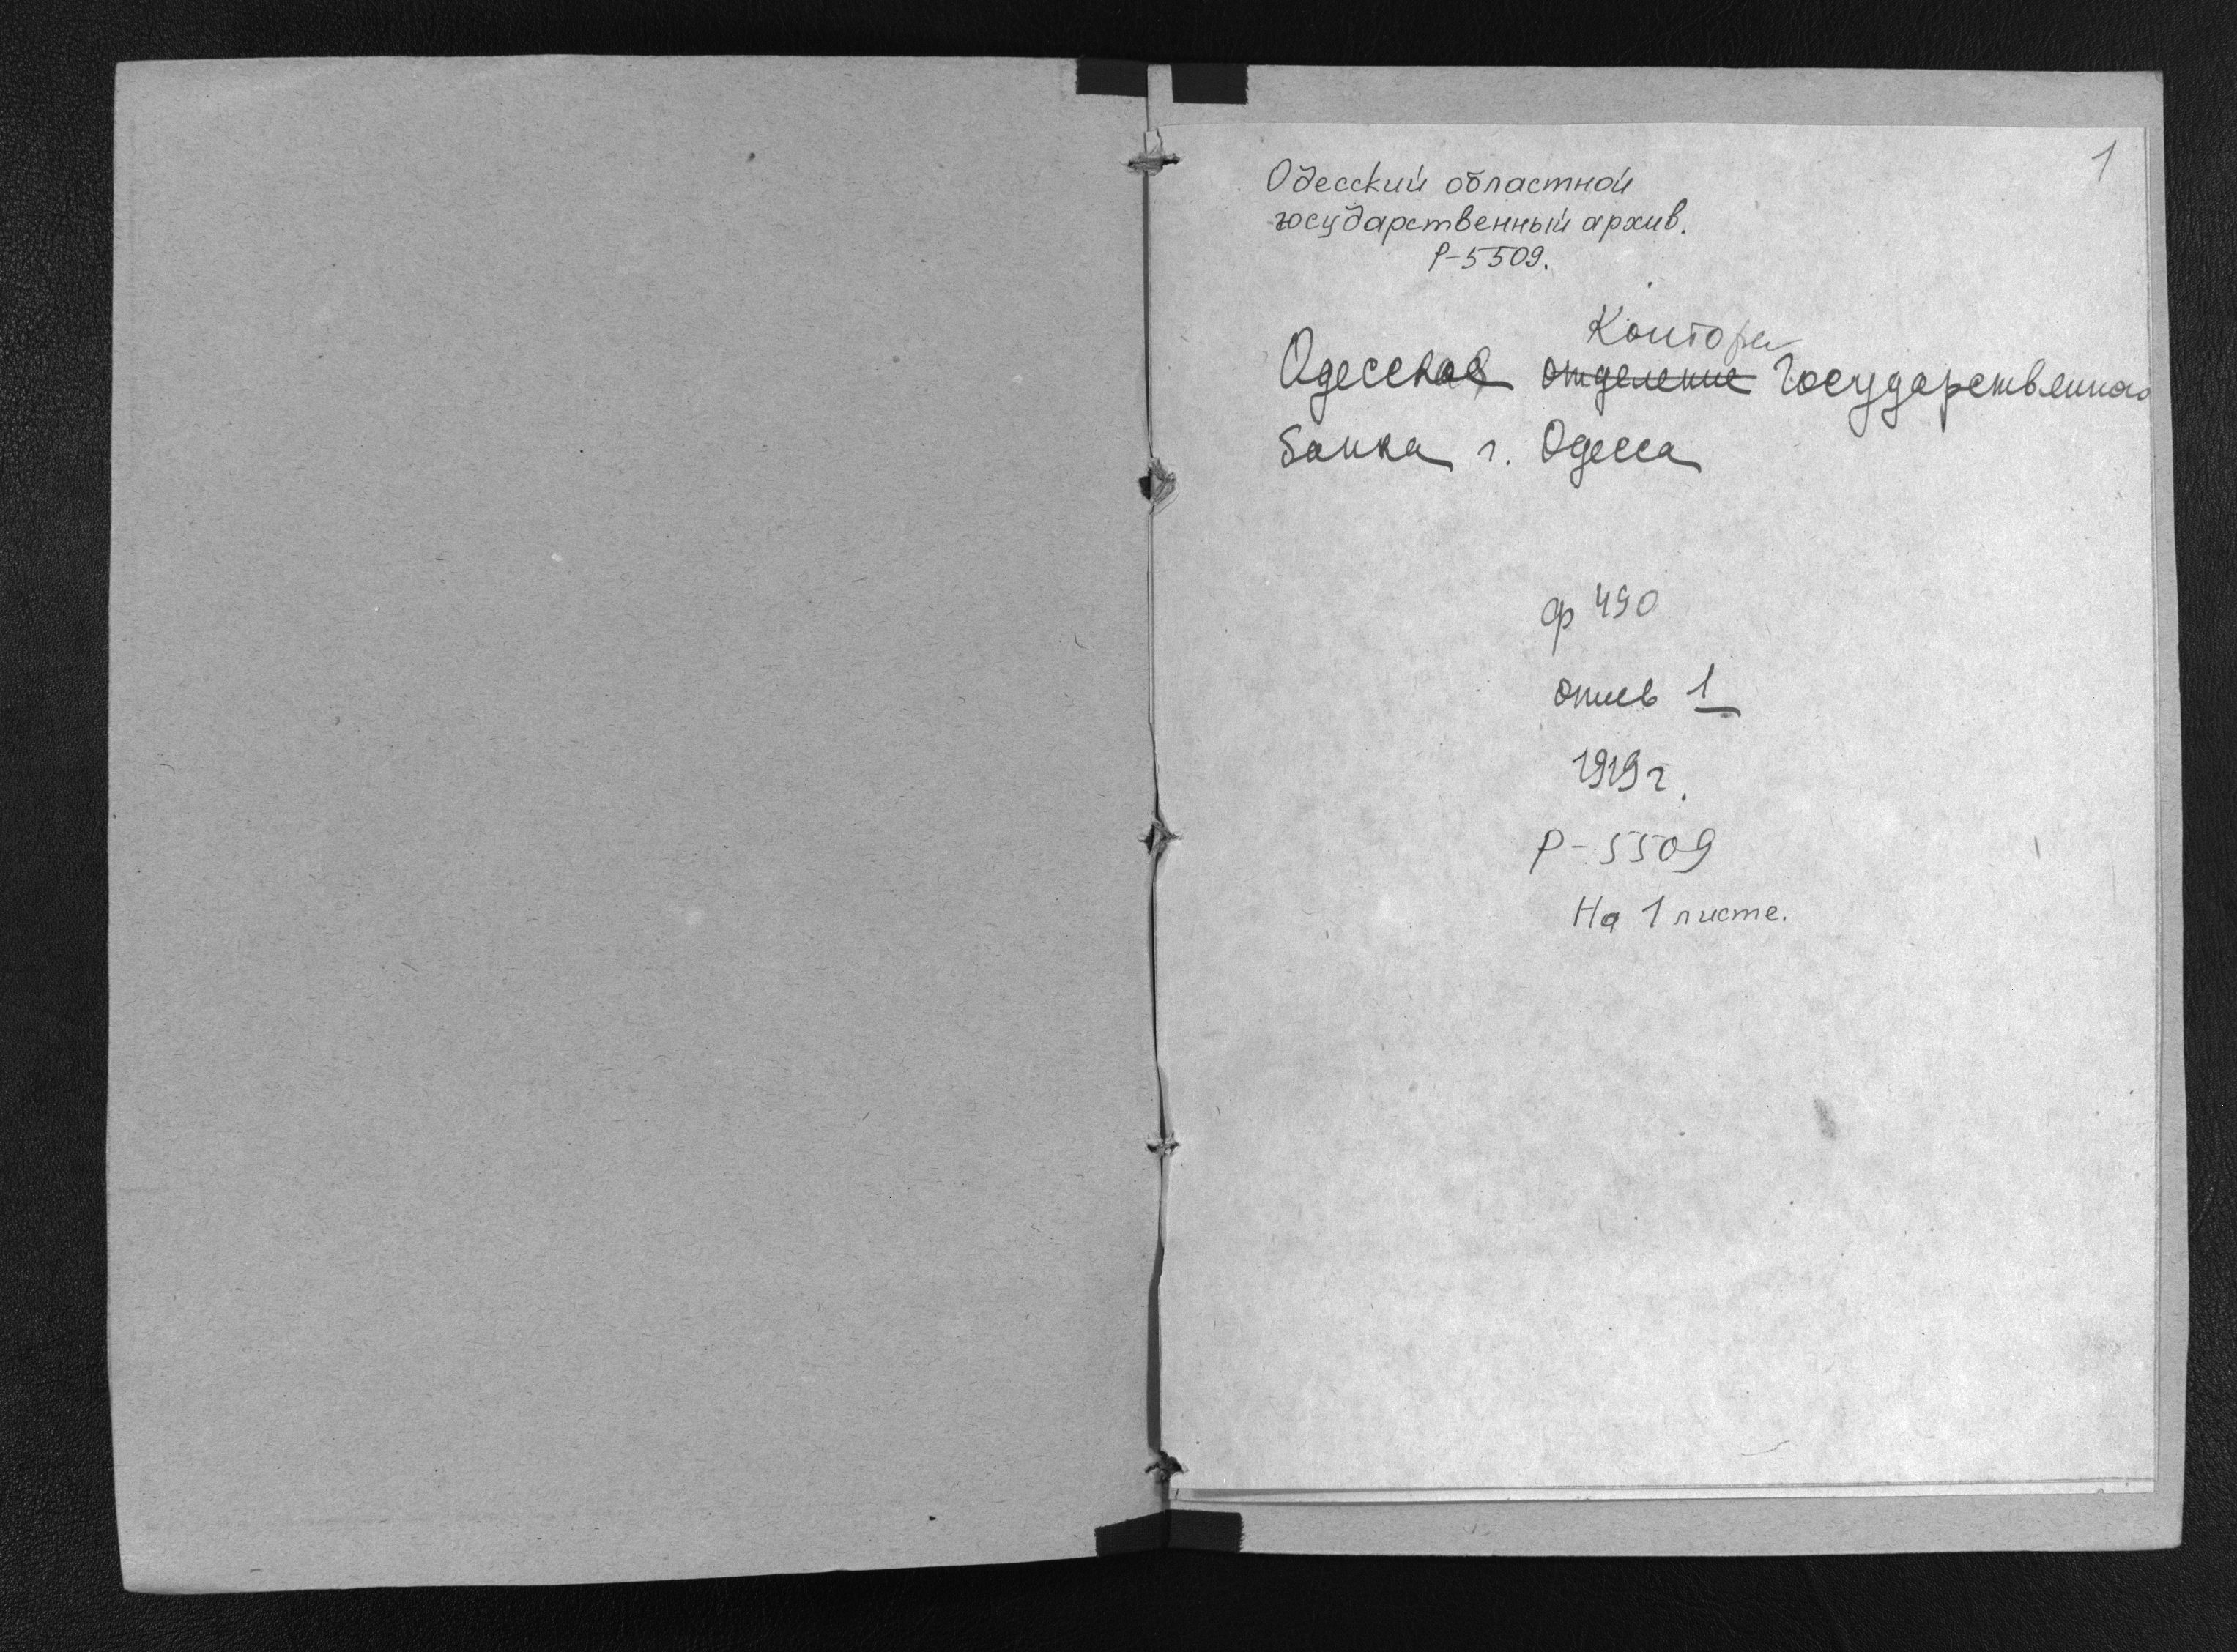 1
Одесский областной
государственный архив.
Р-5509.
Контора
Одесская отделение Государственного
Банка г. Одесса
ф 490
опись 1
1919 г.
Р-5509
На 1 листе.